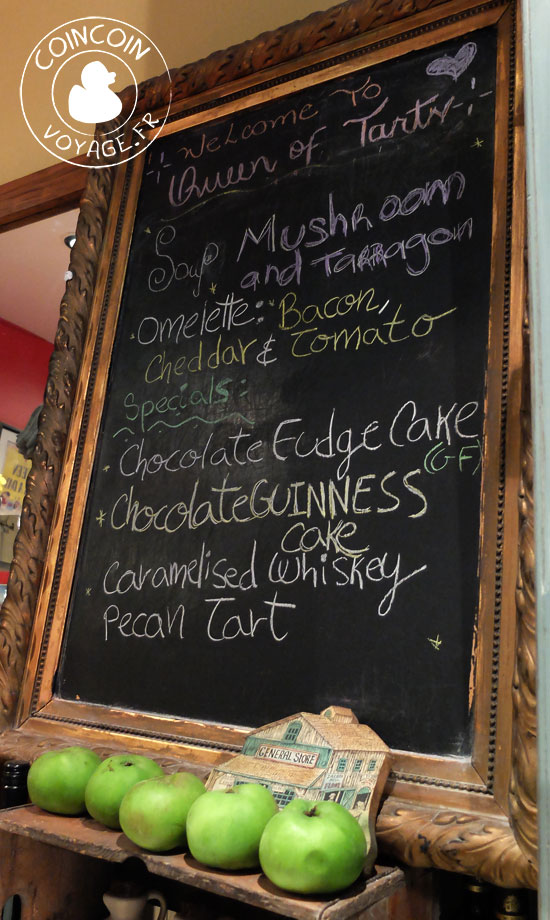 COINCOIN
VOYAGE.FR
Welcome To
Queen of Tarts
Soup Mushroom
and Tarragon
Omelette: Bacon,
Cheddar & Tomato
Specials:
Chocolate Fudge Cake
(G-F)
Chocolate GUINNESS
cake
Caramelised Whiskey
Pecan Tart
GENERAL STORE